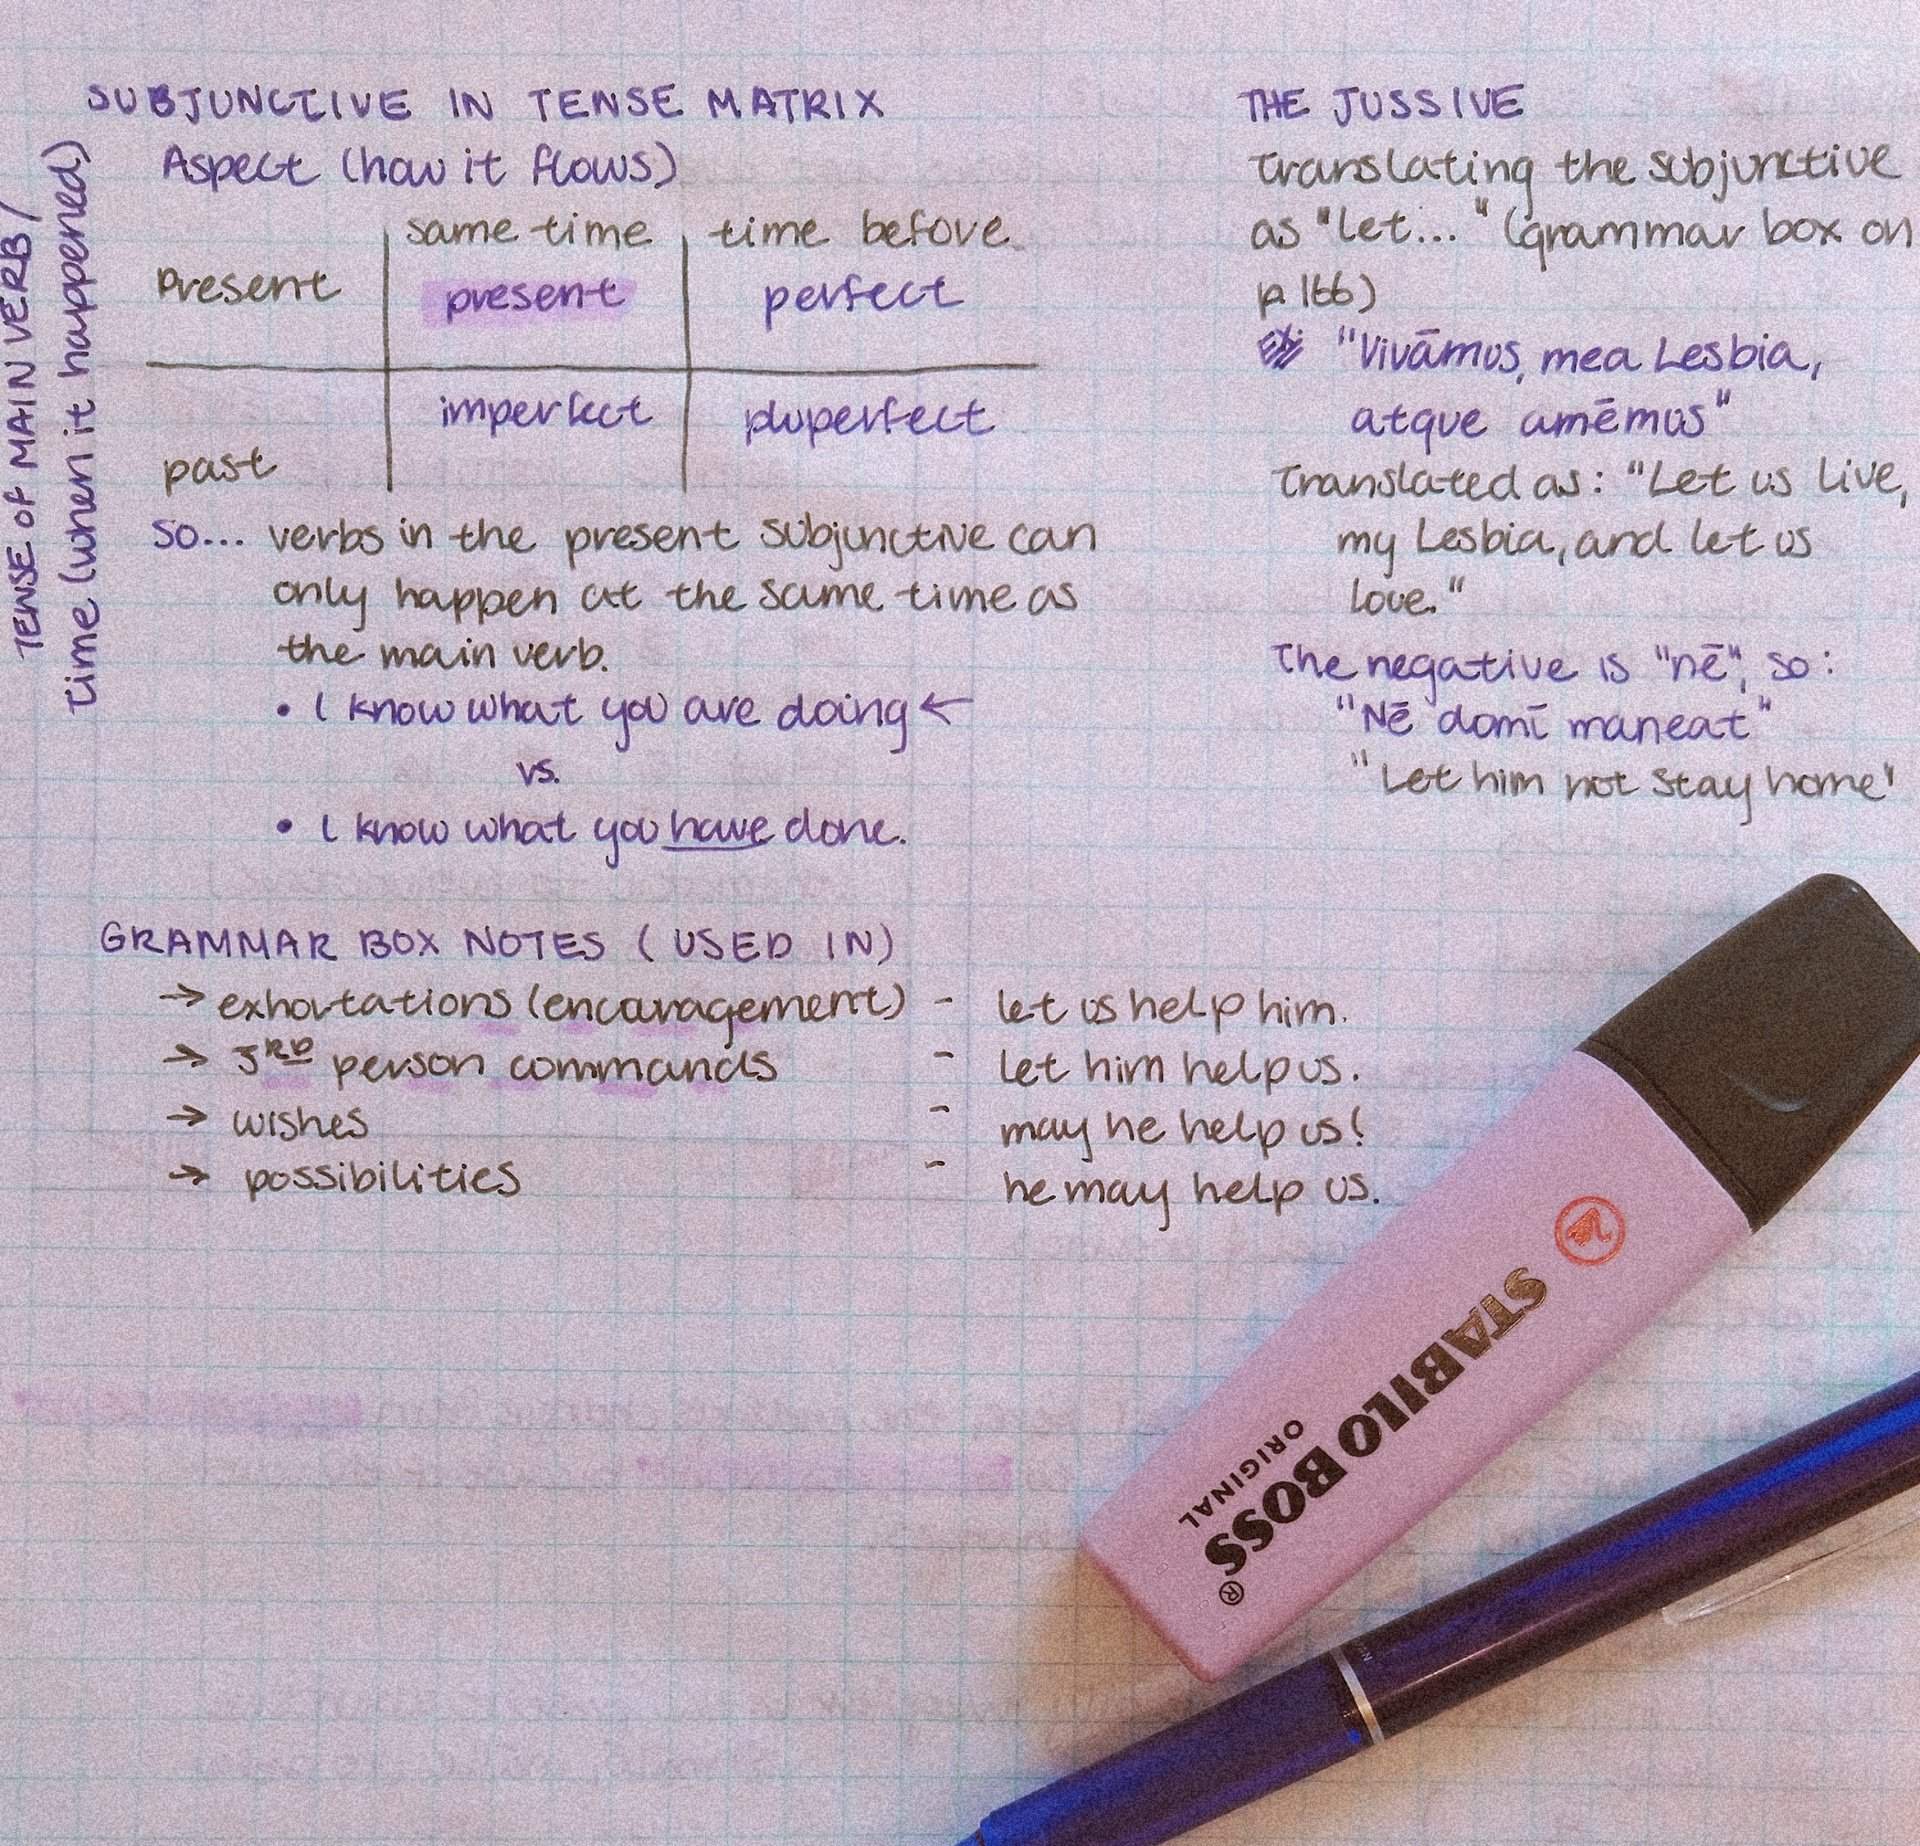 SUBJUNCTIVE IN TENSE MATRIX
Aspect (how it flows)
TENSE OF MAIN VERB /
time (when it happened)
same time time before
Present present perfect
imperfect pluperfect
past
SO... verbs in the present subjunctive can
only happen at the same time as
the main verb.
• I know what you are doing ←
vs.
• I know what you have done.
GRAMMAR BOX NOTES (USED IN)
→ exhortations (encouragement) - let us help him.
→ 3RD person commands - let him help us.
→ wishes - may he help us!
→ possibilities - he may help us.
THE JUSSIVE
Translating the subjunctive
as "let..." (grammar box on
p. 166)
EX: "Vivāmus, mea Lesbia,
atque amēmus"
Translated as: "Let us live,
my Lesbia, and let us
love."
The negative is "nē", so:
"Nē domī maneat"
"Let him not stay home"
STABILO BOSS®
ORIGINAL